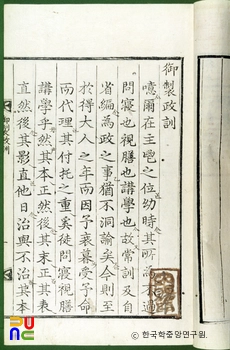 御製政訓
噫爾在主鬯之位幼時其所為不過
問寢也視膳也講學也故常訓及自
省編為政之事猶不洞諭矣今則至
於得大人之年而因予衰暮受予命
而代理其付托之重奚徒問寢視膳
講學乎然其本正然後其末正其表
直然後其影直他日治與不治其本
御製政訓
한국학중앙연구원